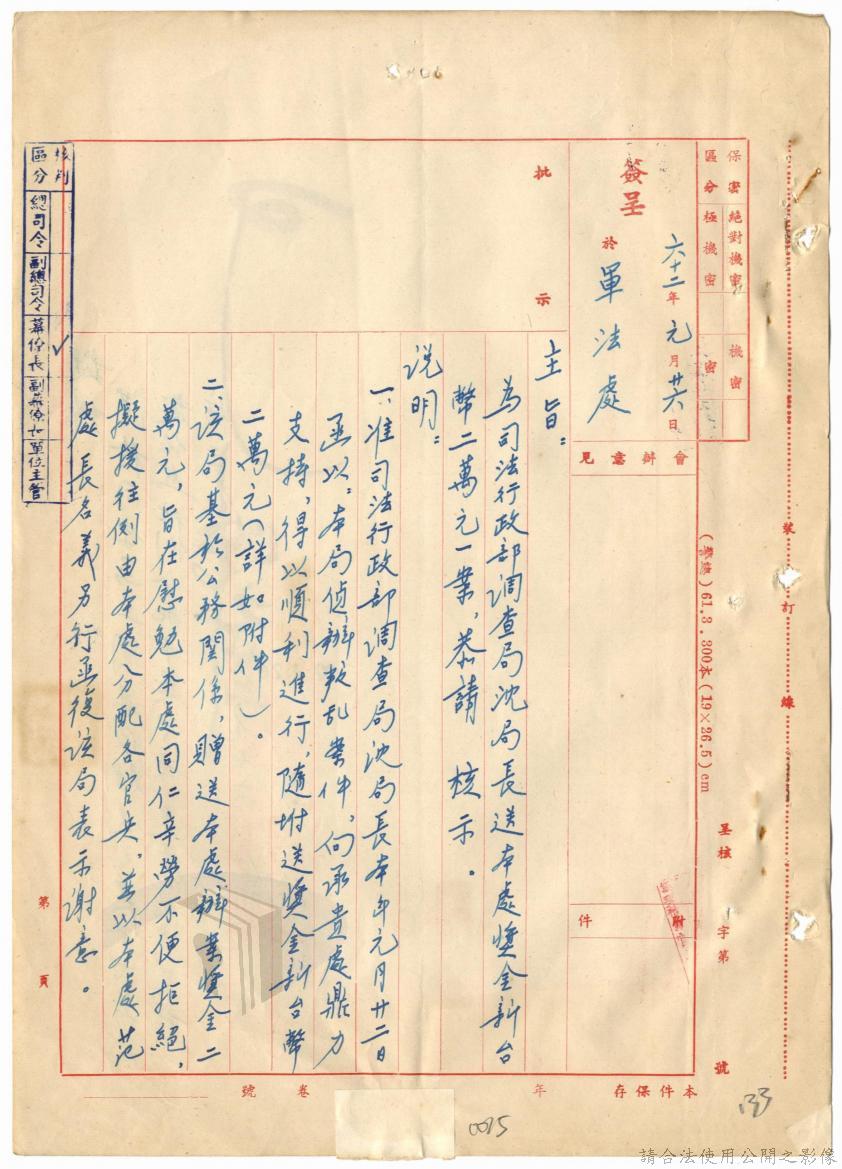 保密區分
絕對機密
極機密
機密
密
簽呈
六十二年元月廿六日
於 軍法處
會辦意見
附件
批示
主旨：
為司法行政部調查局沈局長送本處獎金新台
幣二萬元一案，恭請　核示。
說明：
一、准司法行政部調查局沈局長本年元月廿二日
函以：本局偵辦叛乱案件，向承貴處鼎力
支持，得以順利進行，隨附送獎金新台幣
二萬元（詳如附件）。
二、該局基於公務関係，贈送本處辦案獎金二
萬元，旨在慰勉本處同仁辛勞不便拒絕，
擬援往例由本處分配各官兵，並以本處范
處長名義另行函復該局表示謝意。
核判區分
總司令
副總司令
幕僚長 ✓
副幕僚長
單位主管
裝訂線
61.3.300本(19×26.5)cm
呈核
字第
號
第 頁
本件保存 年 卷 號
133
0095
請合法使用公開之影像